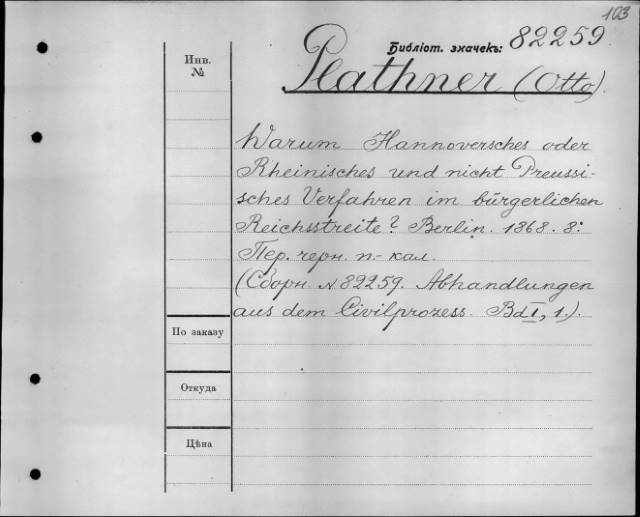 103
Библіот. значекъ: 82259
Инв.
№
Plathner (Otto).
Warum Hannoversches oder
Rheinisches und nicht Preussi-
sches Verfahren im bürgerlichen
Reichsstreite? Berlin. 1868. 8:
Пер. черн. п.-кал.
(Сборн. № 82259. Abhandlungen
aus dem Civilprozess. Bd I, 1.).
По заказу
Откуда
Цѣна